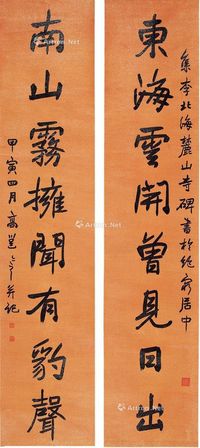 東海雲開曾見日出
集李北海麓山寺碑書於居中
南山霧擁聞有豹聲
甲寅四月高邕之并記